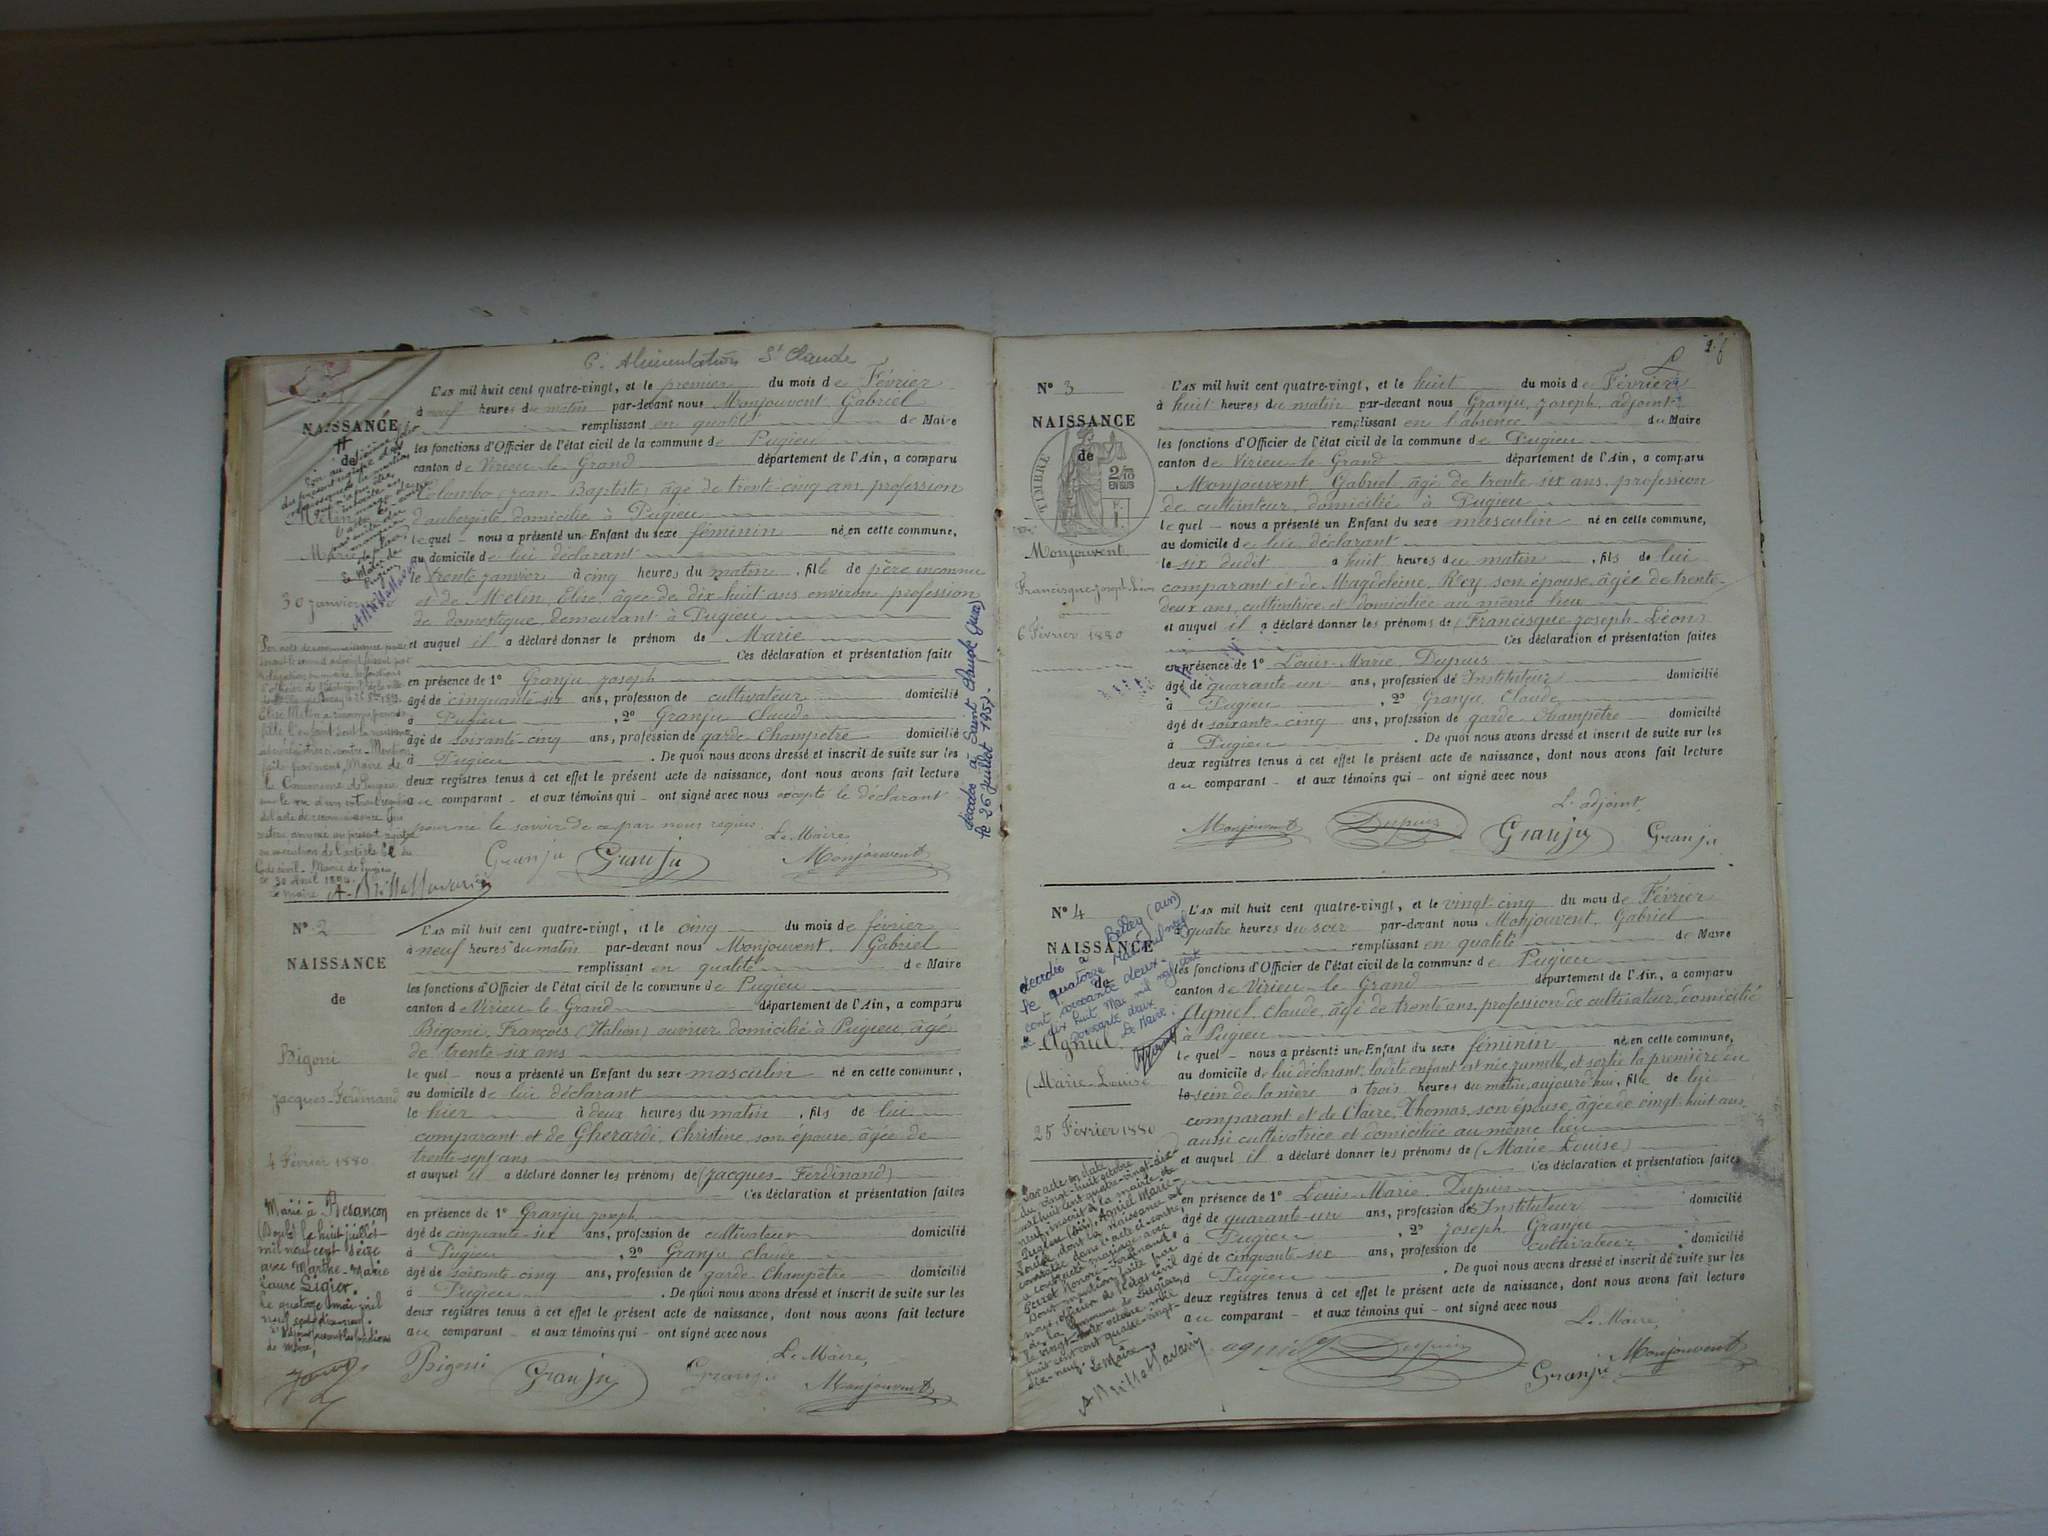 C. Alimentation St Claude
NAISSANCE
de
Melin
Marie
30 janvier
L'AN mil huit cent quatre-vingt, et le premier du mois de Février
à neuf heures du matin par-devant nous Monjouvent, Gabriel
remplissant en qualité de Maire
les fonctions d'Officier de l'état civil de la commune de Pugieu
canton de Virieu-le-Grand département de l'Ain, a comparu
Colombo, Jean-Baptiste, âgé de trente-cinq ans, profession
d'aubergiste, domicilié à Pugieu
lequel nous a présenté un Enfant du sexe féminin né en cette commune,
au domicile de lui déclarant
le trente janvier à cinq heures du matin, fille de père inconnu
et de Melin, Elise, âgée de dix-huit ans environ, profession
de domestique, demeurant à Pugieu
et auquel il a déclaré donner le prénom de Marie
Ces déclaration et présentation faite
en présence de 1° Granju Joseph
âgé de cinquante-six ans, profession de cultivateur domicilié
à Pugieu, 2° Granju Claude
âgé de soixante-cinq ans, profession de garde-champêtre domicilié
à Pugieu. De quoi nous avons dressé et inscrit de suite sur les
deux registres tenus à cet effet le présent acte de naissance, dont nous avons fait lecture
au comparant et aux témoins qui ont signé avec nous excepté le déclarant
pour ne le savoir de ce par nous requis.
Le Maire
Granju Granju Monjouvent
Elise Melin a reconnu pour sa
fille l'enfant dont la naissance
Maire de
la Commune de Pugieu
Code civil. Mairie de Pugieu
le 30 Avril 1894.
Le Maire A. Brillat Savarin
décédée à Saint Claude (Jura)
le 26 juillet 1957.
N° 2
NAISSANCE
de
Bigoni
Jacques-Ferdinand
4 Février 1880
Marié à Besançon
(Doubs) le huit juillet
mil neuf cent seize
avec Marthe-Marie
Laure Ligier.
Le quatorze mai mil
neuf cent dix neuf.
de Maire,
L'AN mil huit cent quatre-vingt, et le cinq du mois de février
à neuf heures du matin par-devant nous Monjouvent, Gabriel
remplissant en qualité de Maire
les fonctions d'Officier de l'état civil de la commune de Pugieu
canton de Virieu-le-Grand département de l'Ain, a comparu
Bigoni, François (Italien) ouvrier domicilié à Pugieu, âgé
de trente-six ans
lequel nous a présenté un Enfant du sexe masculin né en cette commune,
au domicile de lui déclarant
le hier à deux heures du matin, fils de lui
comparant et de Gherardi, Christine, son épouse, âgée de
trente-sept ans
et auquel il a déclaré donner les prénoms de (Jacques-Ferdinand)
Ces déclaration et présentation faites
en présence de 1° Granju Joseph
âgé de cinquante-six ans, profession de cultivateur domicilié
à Pugieu, 2° Granju Claude
âgé de soixante-cinq ans, profession de garde-champêtre domicilié
à Pugieu. De quoi nous avons dressé et inscrit de suite sur les
deux registres tenus à cet effet le présent acte de naissance, dont nous avons fait lecture
au comparant et aux témoins qui ont signé avec nous
Le Maire,
Bigoni Granju Granju Monjouvent
N° 3
NAISSANCE
de
TIMBRE
2/10
EN SUS
Monjouvent
Francisque-Joseph-Léon
6 Février 1880
L'AN mil huit cent quatre-vingt, et le huit du mois de Février
à huit heures du matin par-devant nous Granju, Joseph, adjoint
remplissant en l'absence du Maire
les fonctions d'Officier de l'état civil de la commune de Pugieu
canton de Virieu-le-Grand département de l'Ain, a comparu
Monjouvent, Gabriel âgé de trente-six ans, profession
de cultivateur, domicilié à Pugieu
lequel nous a présenté un Enfant du sexe masculin né en cette commune,
au domicile de lui déclarant
le six dudit à huit heures du matin, fils de lui
comparant et de Magdeleine Rey son épouse, âgée de trente-
deux ans, cultivatrice et domiciliée au même lieu
et auquel il a déclaré donner les prénoms de (Francisque-Joseph-Léon)
Ces déclaration et présentation faites
en présence de 1° Louis-Marie Dupuis
âgé de quarante-un ans, profession de Instituteur domicilié
à Pugieu, 2° Granju, Claude
âgé de soixante-cinq ans, profession de garde-champêtre domicilié
à Pugieu. De quoi nous avons dressé et inscrit de suite sur les
deux registres tenus à cet effet le présent acte de naissance, dont nous avons fait lecture
au comparant et aux témoins qui ont signé avec nous
L'adjoint,
Monjouvent Dupuis Granju Granju
N° 4
NAISSANCE
de
décédée à Belley (Ain)
le quatorze Mai mil neuf
cent soixante deux.
dix huit Mai mil neuf cent
soixante deux
Le Maire:
Agniel
(Marie-Louise
25 Février 1880
Par acte en date
du vingt-huit octobre
mil huit cent quatre-vingt-dix-
neuf, inscrit à la mairie de
Pugieu (Ain), Agniel Marie-
Louise dont la naissance est
constatée dans l'acte ci-contre,
a contracté mariage avec
Honoré-Ferdinand.
Dont mention faite par
nous, officier de l'état civil
de la commune de Pugieu,
le vingt-huit octobre mil
huit cent quatre-vingt-
dix-neuf. Le Maire
A. Brillat Savarin
L'AN mil huit cent quatre-vingt, et le vingt-cinq du mois de Février
à quatre heures du soir par-devant nous Monjouvent, Gabriel
remplissant en qualité de Maire
les fonctions d'Officier de l'état civil de la commune de Pugieu
canton de Virieu-le-Grand département de l'Ain, a comparu
Agniel, Claude, âgé de trente ans, profession de cultivateur, domicilié
à Pugieu
lequel nous a présenté un Enfant du sexe féminin né en cette commune,
au domicile de lui déclarant, ladite enfant est née jumelle et sortie la première du
sein de la mère à trois heures du matin, aujourd'hui, fille de lui
comparant et de Claire Thomas, son épouse, âgée de vingt-huit ans,
aussi cultivatrice et domiciliée au même lieu
et auquel il a déclaré donner les prénoms de (Marie Louise)
Ces déclaration et présentation faites
en présence de 1° Louis-Marie Dupuis
âgé de quarante-un ans, profession de Instituteur domicilié
à Pugieu, 2° Joseph Granju
âgé de cinquante-six ans, profession de cultivateur domicilié
à Pugieu. De quoi nous avons dressé et inscrit de suite sur les
deux registres tenus à cet effet le présent acte de naissance, dont nous avons fait lecture
au comparant et aux témoins qui ont signé avec nous
Le Maire,
agniel Dupuis Granju Monjouvent